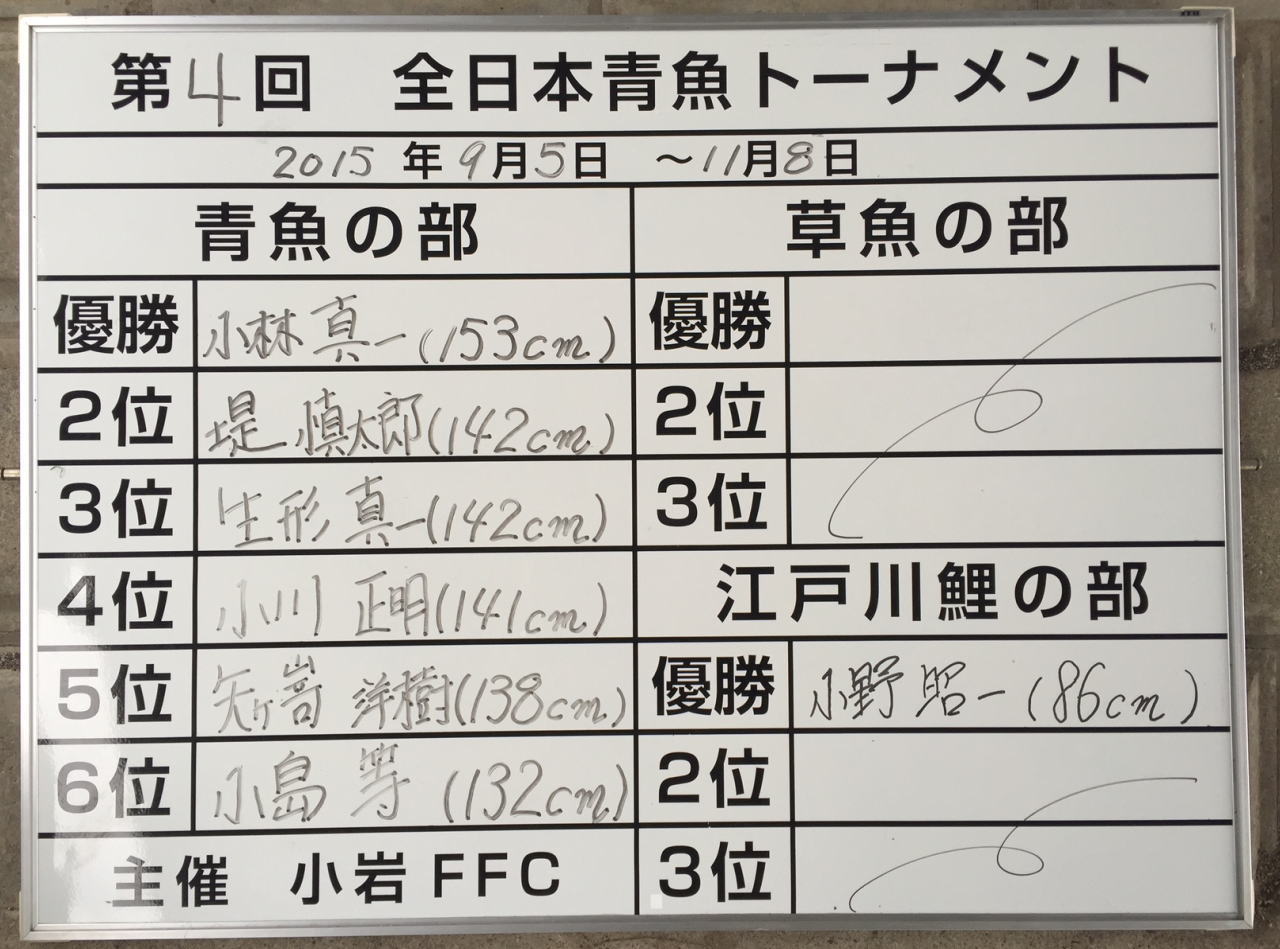 第4回 全日本青魚トーナメント
2015年9月5日 ~11月8日
青魚の部
優勝 小林真一(153cm)
2位 堤慎太郎(142cm)
3位 生形真一(142cm)
4位 小川正明(141cm)
5位 矢ヶ嵜洋樹(138cm)
6位 小島等(132cm)
主催 小岩FFC
草魚の部
優勝
2位
3位
江戸川鯉の部
優勝 小野昭一(86cm)
2位
3位